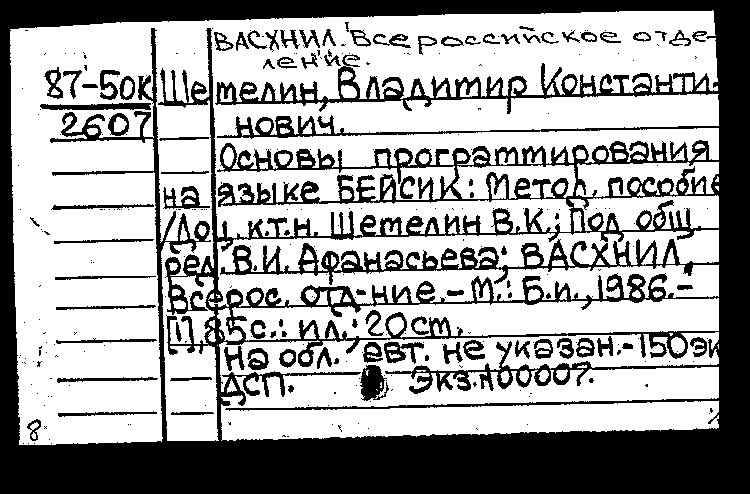 ВАСХНИЛ. Всероссийское отде-
ление.
87-50к Щетелин, Владимир Константи-
2607 нович.
Основы программирования
на языке БЕЙСИК: Метод. пособие
/Доц. к.т.н. Щетелин В.К.; Под общ.
ред. В.И. Афанасьева; ВАСХНИЛ,
Всерос. отд-ние. - М.: Б.и., 1986. -
[1], 85с.: ил.; 20см.
На обл. авт. не указан. - 150 эк
ДСП. Экз.N00007.
8